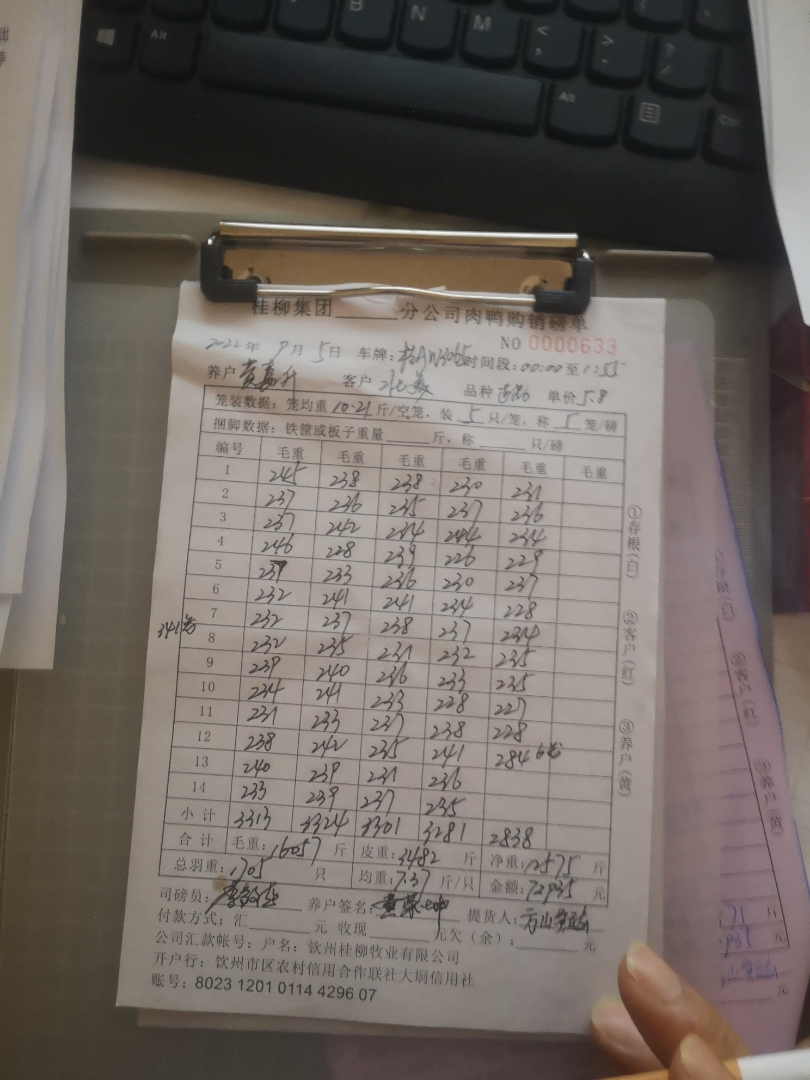 桂柳集团 分公司肉鸭购销磅单
NO 0000633
2022年9月5日 车牌: 时间段:00:00至1:55
养户 黄嘉升 客户 品种 单价 5.8
笼装数据:笼均重 10.21 斤/空笼,装 5 只/笼,称 5 笼/磅
捆脚数据:铁筐或板子重量 斤,称 只/磅
编号 毛重 毛重 毛重 毛重 毛重 毛重
1 245 238 238 230 231
2 237 236 235 237 236
3 237 242 234 244 234
4 246 228 239 226 229
5 239 233 236 230 237
6 232 241 241 234 228
7 232 237 238 237 234
341笼
8 232 235 231 232 235
9 239 240 236 233 235
10 234 241 233 228 227
11 231 233 237 238 228
12 238 242 235 241 284 6笼
13 240 239 231 236
14 233 239 237 235
小计 3313 3324 3301 3281 2838
合计 毛重:16057 斤 皮重:3482 斤 净重:12575 斤
总羽重:1705 只 均重:7.37 斤/只 金额:72935 元
司磅员: 养户签名: 提货人:
付款方式:汇 元 收现 元欠(余): 元
公司汇款帐号:户名:钦州桂柳牧业有限公司
开户行:钦州市区农村信用合作联社大垌信用社
账号:8023 1201 0114 4296 07
①存根(白)
②客户(红)
③养户(黄)
Alt
B
N
M
Alt